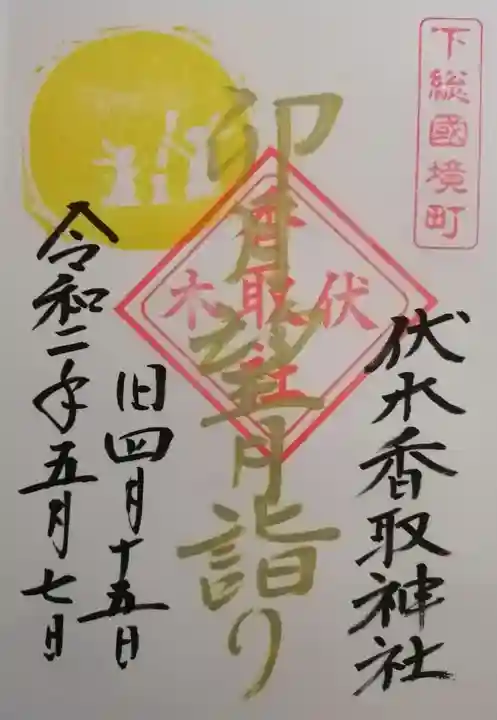 下総國境町
伏木香取神社
伏木
香取
社
卯月望月詣り
旧四月十五日
令和二年五月七日